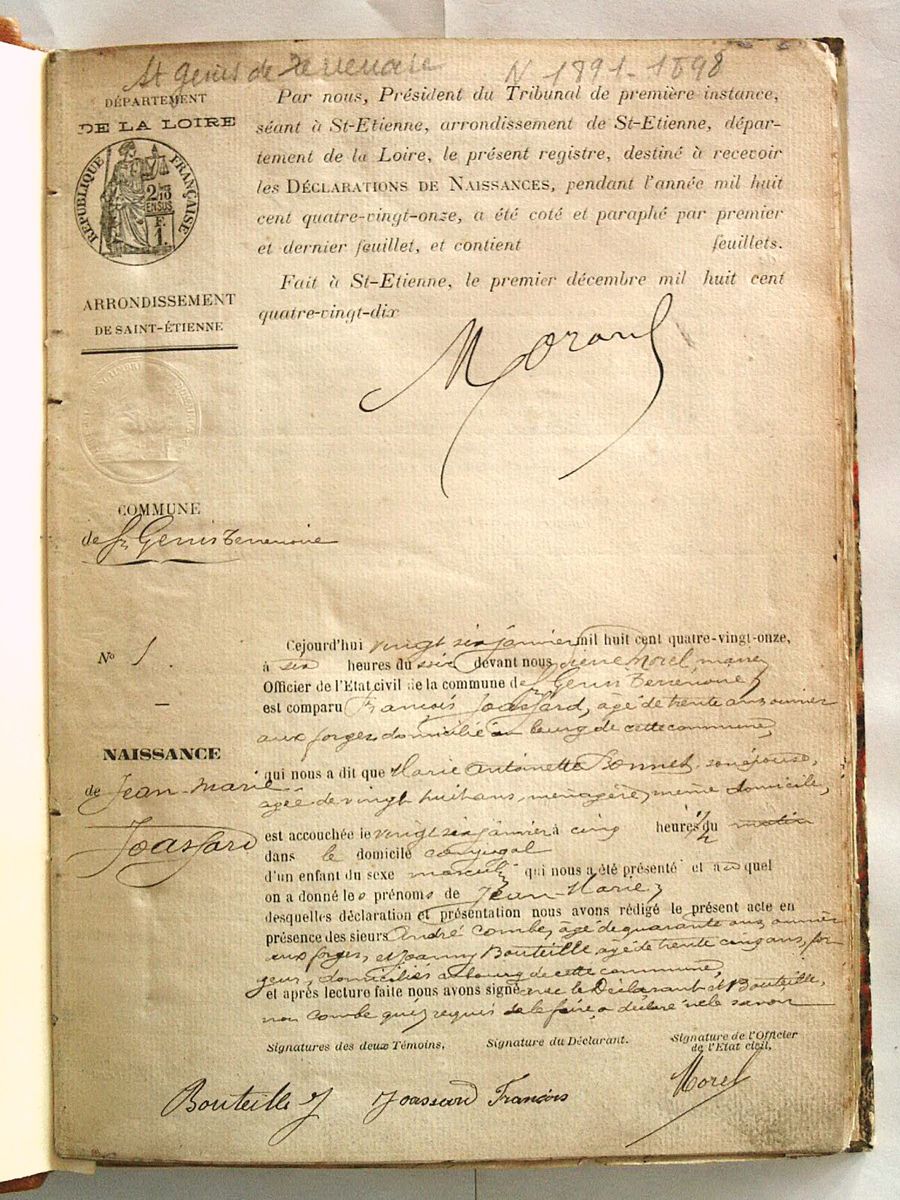 St Genis de Terrenoire N 1891-1898
DÉPARTEMENT
DE LA LOIRE
RÉPUBLIQUE FRANÇAISE
ARRONDISSEMENT
DE SAINT-ÉTIENNE
Par nous, Président du Tribunal de première instance,
séant à St-Etienne, arrondissement de St-Etienne, dépar-
tement de la Loire, le présent registre, destiné à recevoir
les DÉCLARATIONS DE NAISSANCES, pendant l'année mil huit
cent quatre-vingt-onze, a été coté et paraphé par premier
et dernier feuillet, et contient feuillets.
Fait à St-Etienne, le premier décembre mil huit cent
quatre-vingt-dix
COMMUNE
de St Genis Terrenoire
N° 1.
NAISSANCE
de Jean-Marie
Joassard
Cejourd'hui vingt six janvier mil huit cent quatre-vingt-onze,
à six heures du soir devant nous Pierre Morel, maire
Officier de l'Etat civil de la commune de St Genis Terrenoire
est comparu François Joassard, âgé de trente ans, ouvrier
aux forges, domicilié au bourg de cette commune,
qui nous a dit que Marie Antoinette Bonnet, son épouse,
âgée de vingt huit ans, ménagère, même domicile,
est accouchée le vingt six janvier à cinq heures 1/2 du matin
dans le domicile conjugal
d'un enfant du sexe masculin qui nous a été présenté et auquel
on a donné les prénoms de Jean-Marie,
desquelles déclaration et présentation nous avons rédigé le présent acte en
présence des sieurs André Combe, âgé de quarante ans, ouvrier
aux forges, et Joanny Bouteille, âgé de trente cinq ans, for
geur, domiciliés au bourg de cette commune,
et après lecture faite nous avons signé avec le Déclarant et Bouteille,
non Combe qui, requis de le faire, a déclaré ne le savoir
Signatures des deux Témoins. Signature du Déclarant. Signature de l'Officier
de l'Etat civil.
Bouteille J Joassard François Morel